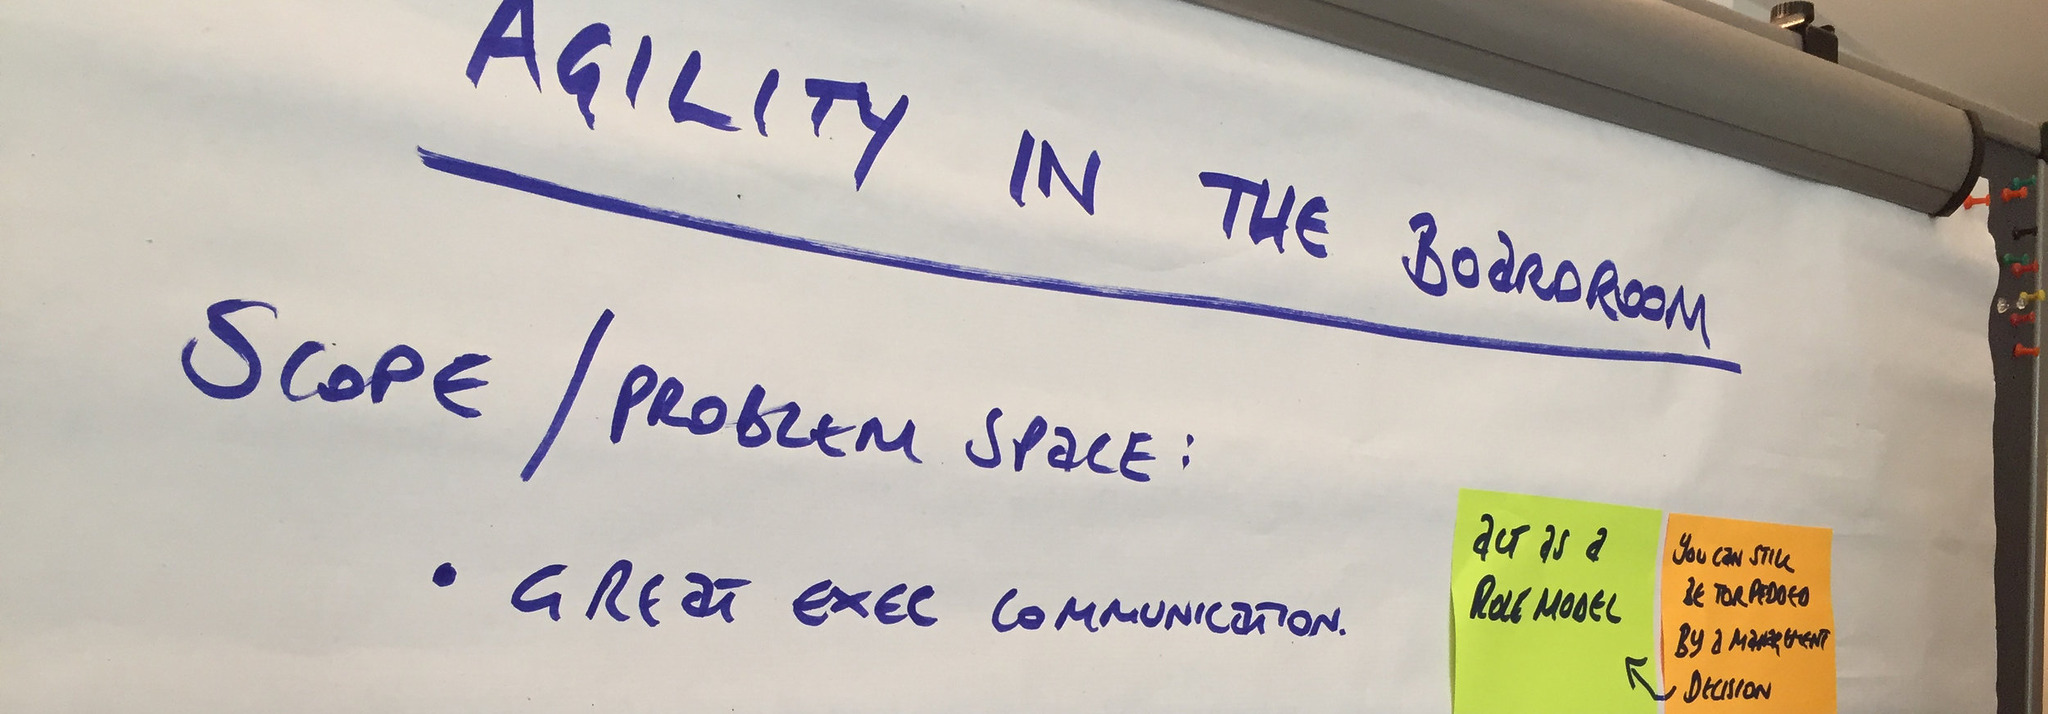 AGILITY IN THE BOARDROOM
SCOPE / PROBLEM SPACE:
• GREAT EXEC COMMUNICATION.
ACT AS A
ROLE MODEL
YOU CAN STILL
BE TORPEDOED
BY A MANAGEMENT
DECISION